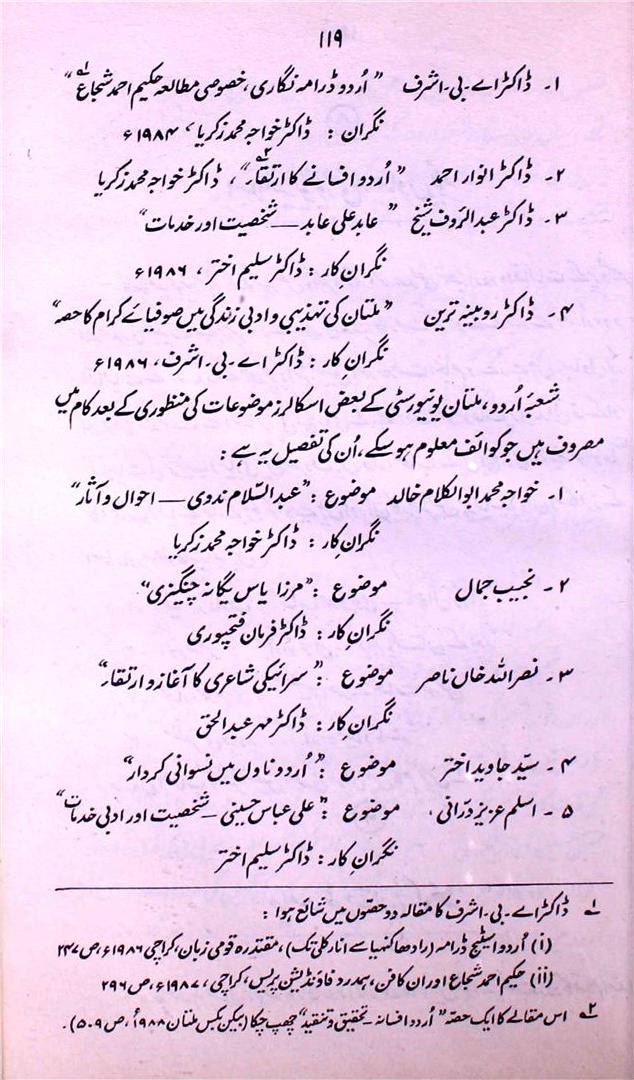 ۱۱۹
۱۔ ڈاکٹر اے۔بی۔اشرف ”اُردو ڈرامہ نگاری، خصوصی مطالعہ حکیم احمد شجاع“ ؎۱
نگران : ڈاکٹر خواجہ محمد زکریا، ۱۹۸۴ء
۲۔ ڈاکٹر انوار احمد ”اُردو افسانے کا ارتقاء“ ؎۲، ڈاکٹر خواجہ محمد زکریا
۳۔ ڈاکٹر عبدالرؤف شیخ ”عابد علی عابد — شخصیت اور خدمات“
نگرانِ کار : ڈاکٹر سلیم اختر، ۱۹۸۶ء
۴۔ ڈاکٹر روبینہ ترین ”ملتان کی تہذیبی و ادبی زندگی میں صوفیائے کرام کا حصہ“
نگرانِ کار : ڈاکٹر اے۔بی۔اشرف، ۱۹۸۶ء
شعبۂ اُردو، ملتان یونیورسٹی کے بعض اسکالرز موضوعات کی منظوری کے بعد کام میں
مصروف ہیں جو کوائف معلوم ہو سکے، اُن کی تفصیل یہ ہے :
۱۔ خواجہ محمد ابوالکلام خالد موضوع : ”عبدالسّلام ندوی — احوال و آثار“
نگرانِ کار : ڈاکٹر خواجہ محمد زکریا
۲۔ نجیب جمال موضوع : ”مرزا یاس یگانہ چنگیزی“
نگرانِ کار : ڈاکٹر فرمان فتحپوری
۳۔ نصراللہ خان ناصر موضوع : ”سرائیکی شاعری کا آغاز و ارتقاء“
نگرانِ کار : ڈاکٹر مہر عبدالحق
۴۔ سیّد جاوید اختر موضوع : ”اُردو ناول میں نسوانی کردار“
۵۔ اسلم عزیز درّانی، موضوع : ”علی عباس حسینی — شخصیت اور ادبی خدمات“
نگرانِ کار : ڈاکٹر سلیم اختر
؎۱ ڈاکٹر اے۔بی۔اشرف کا مقالہ دو حصّوں میں شائع ہوا :
(i) اُردو اسٹیج ڈرامہ (رادھا کنہیا سے انارکلی تک)، مقتدرہ قومی زبان، کراچی ۱۹۸۶ء، ص ۲۴۷
(ii) حکیم احمد شجاع اور ان کا فن، ہمدرد فاؤنڈیشن پریس، کراچی، ۱۹۸۷ء، ص ۲۹۶
؎۲ اس مقالے کا ایک حصّہ ”اُردو افسانہ – تحقیق و تنقید“ چھپ چکا (بیکن بکس ملتان ۱۹۸۸ء، ص ۵۰۹)۔